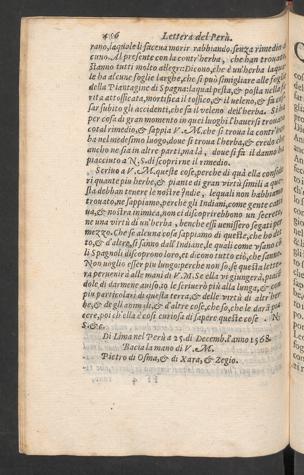 456 Lettera del Perù.
rano, laquale li faceua morir rabbiando, senza rimedio al
cuno. Al presente con la contr'herba, che han trouato
stanno tutti molto allegri: Dicono, che è un'herba laqua
le ha alcune foglie larghe, che si può simigliare alle foglie
della Piantagine di Spagna: laqual pesta, & posta nella fe
rita attossicata, mortifica il tossico, & il ueleno, & fa ces
sar subito gli accidenti, che fa il veleno dell'herba. Si
per cosa di gran momento in quei luoghi l'hauersi trouato
cotal rimedio, & sappia V. M. che si troua la contr'her
ba nel medesimo luogo, doue si troua l'herba, & credo che
anche ne sia in altre parti, ma là, doue si fa il danno ha
piacciuto à N. S. di scoprirne il rimedio.
Scriuo à V. M. queste cose, perche di quà ella consideri
ri quante piu herbe, & piante di gran virtù simili a questa
debban hauere le nostre Indie, lequali non habbiamo
trouato, ne sappiamo, perche gli Indiani, come gente catti
ua, & nostra inimica, non ci discoprirebbono un secreto,
ne una virtù di un'herba, benche essi uenissero segati per
mezzo. Che se alcuna cosa sappiamo di queste, che ho det
to, & d'altre, si sanno dall'Indiane, le quali come vsano con
li Spagnuoli discoprono loro, et dicono tutto ciò, che sanno.
Non uoglio esser piu lungo: perche non so, se questa lette
ra peruenirà alle mani di V. M. Se ella ui giungerà,
dole di darmene auiso, io le scriuerò più alla lunga, & con
piu particolari di questa terra, & delle virtù di altr'her
be, & de gli animali, & d'altre cose, che so, che le darà pia
cere, poi ch'ella è così curiosa di sapere queste cose. N.
S. &c.
Di Lima nel Perù a 25. di Decemb. l'anno 1568.
Bacia la mano di V. M.
Pietro di Osma, & di Xara, & Zegio.